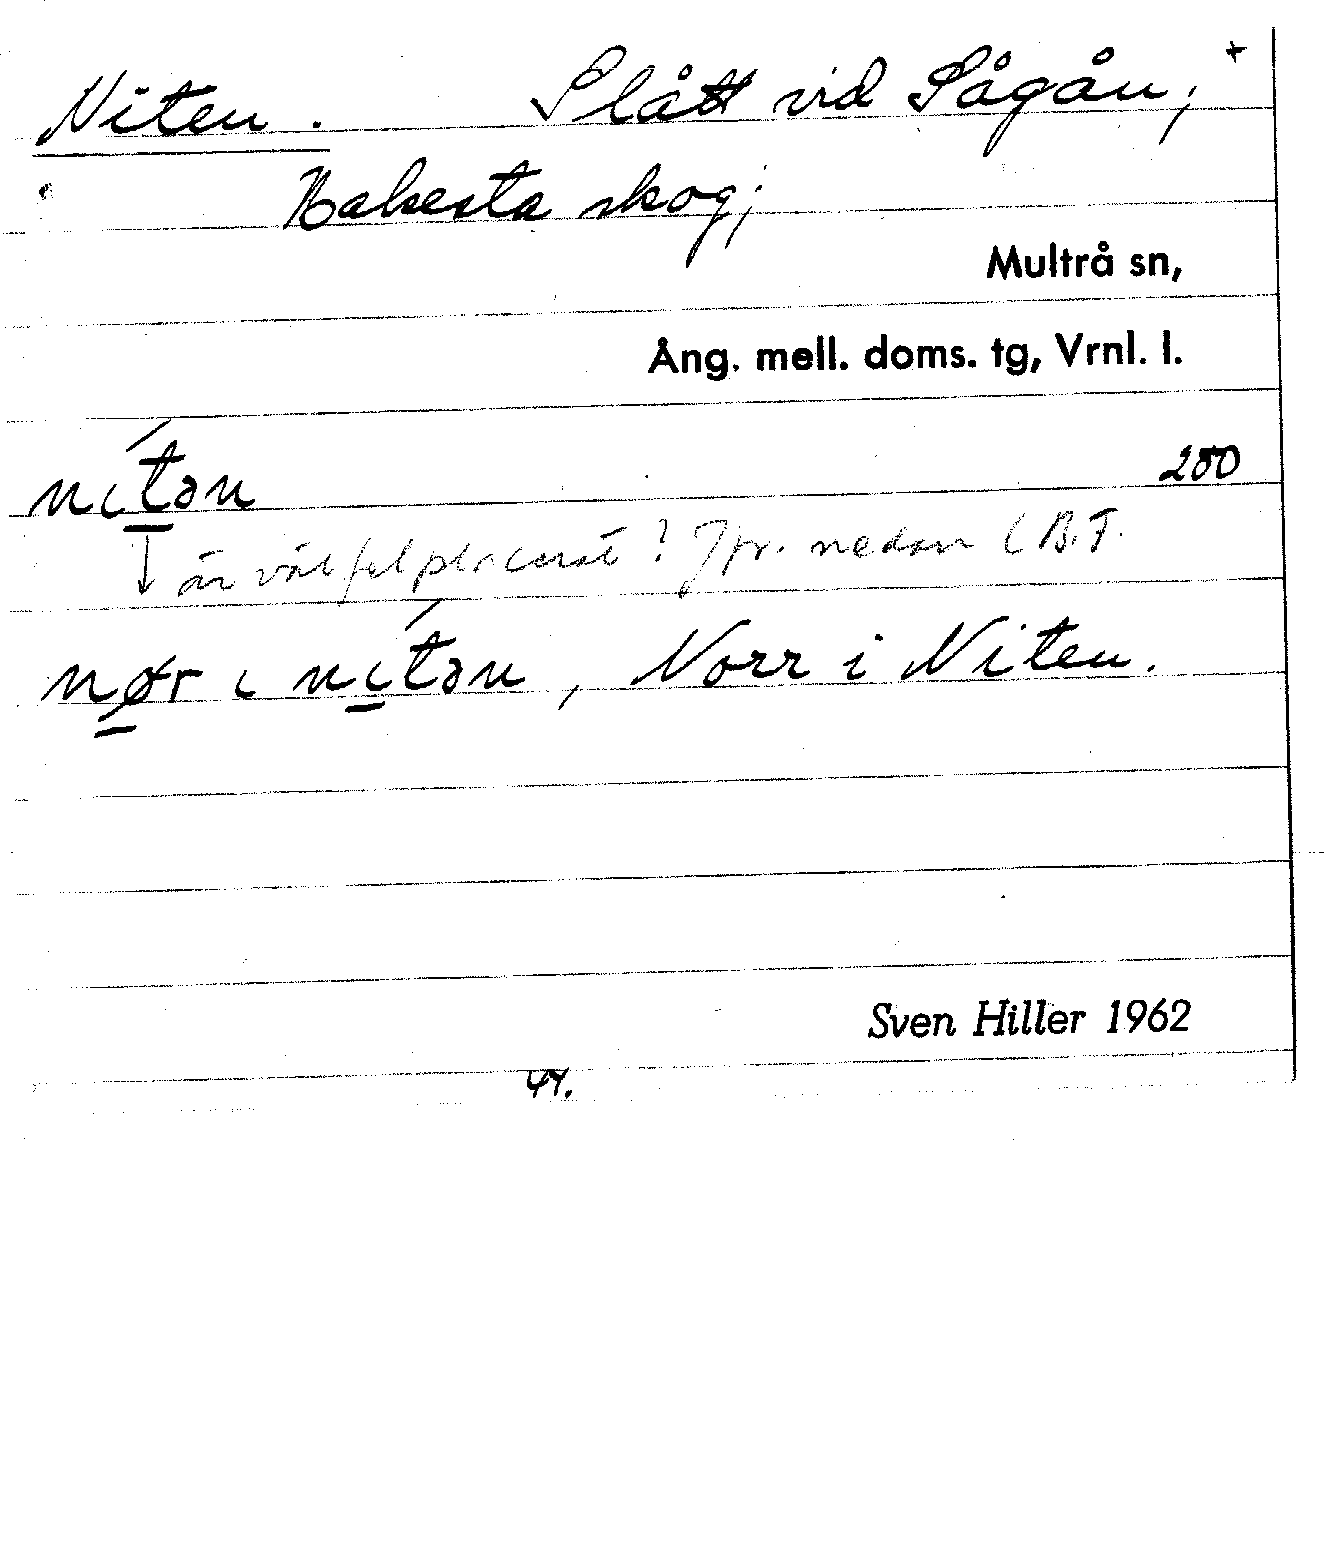 Niten. Slått vid Sågån, +
Bakesta skog;
Multrå sn,
Ång. mell. doms. tg, Vrnl. l.
nítən 280
↓ är väl felplacerat? Jfr. nedan (B.F.
nør ı nítən, Norr i Niten.
Sven Hiller 1962
44.